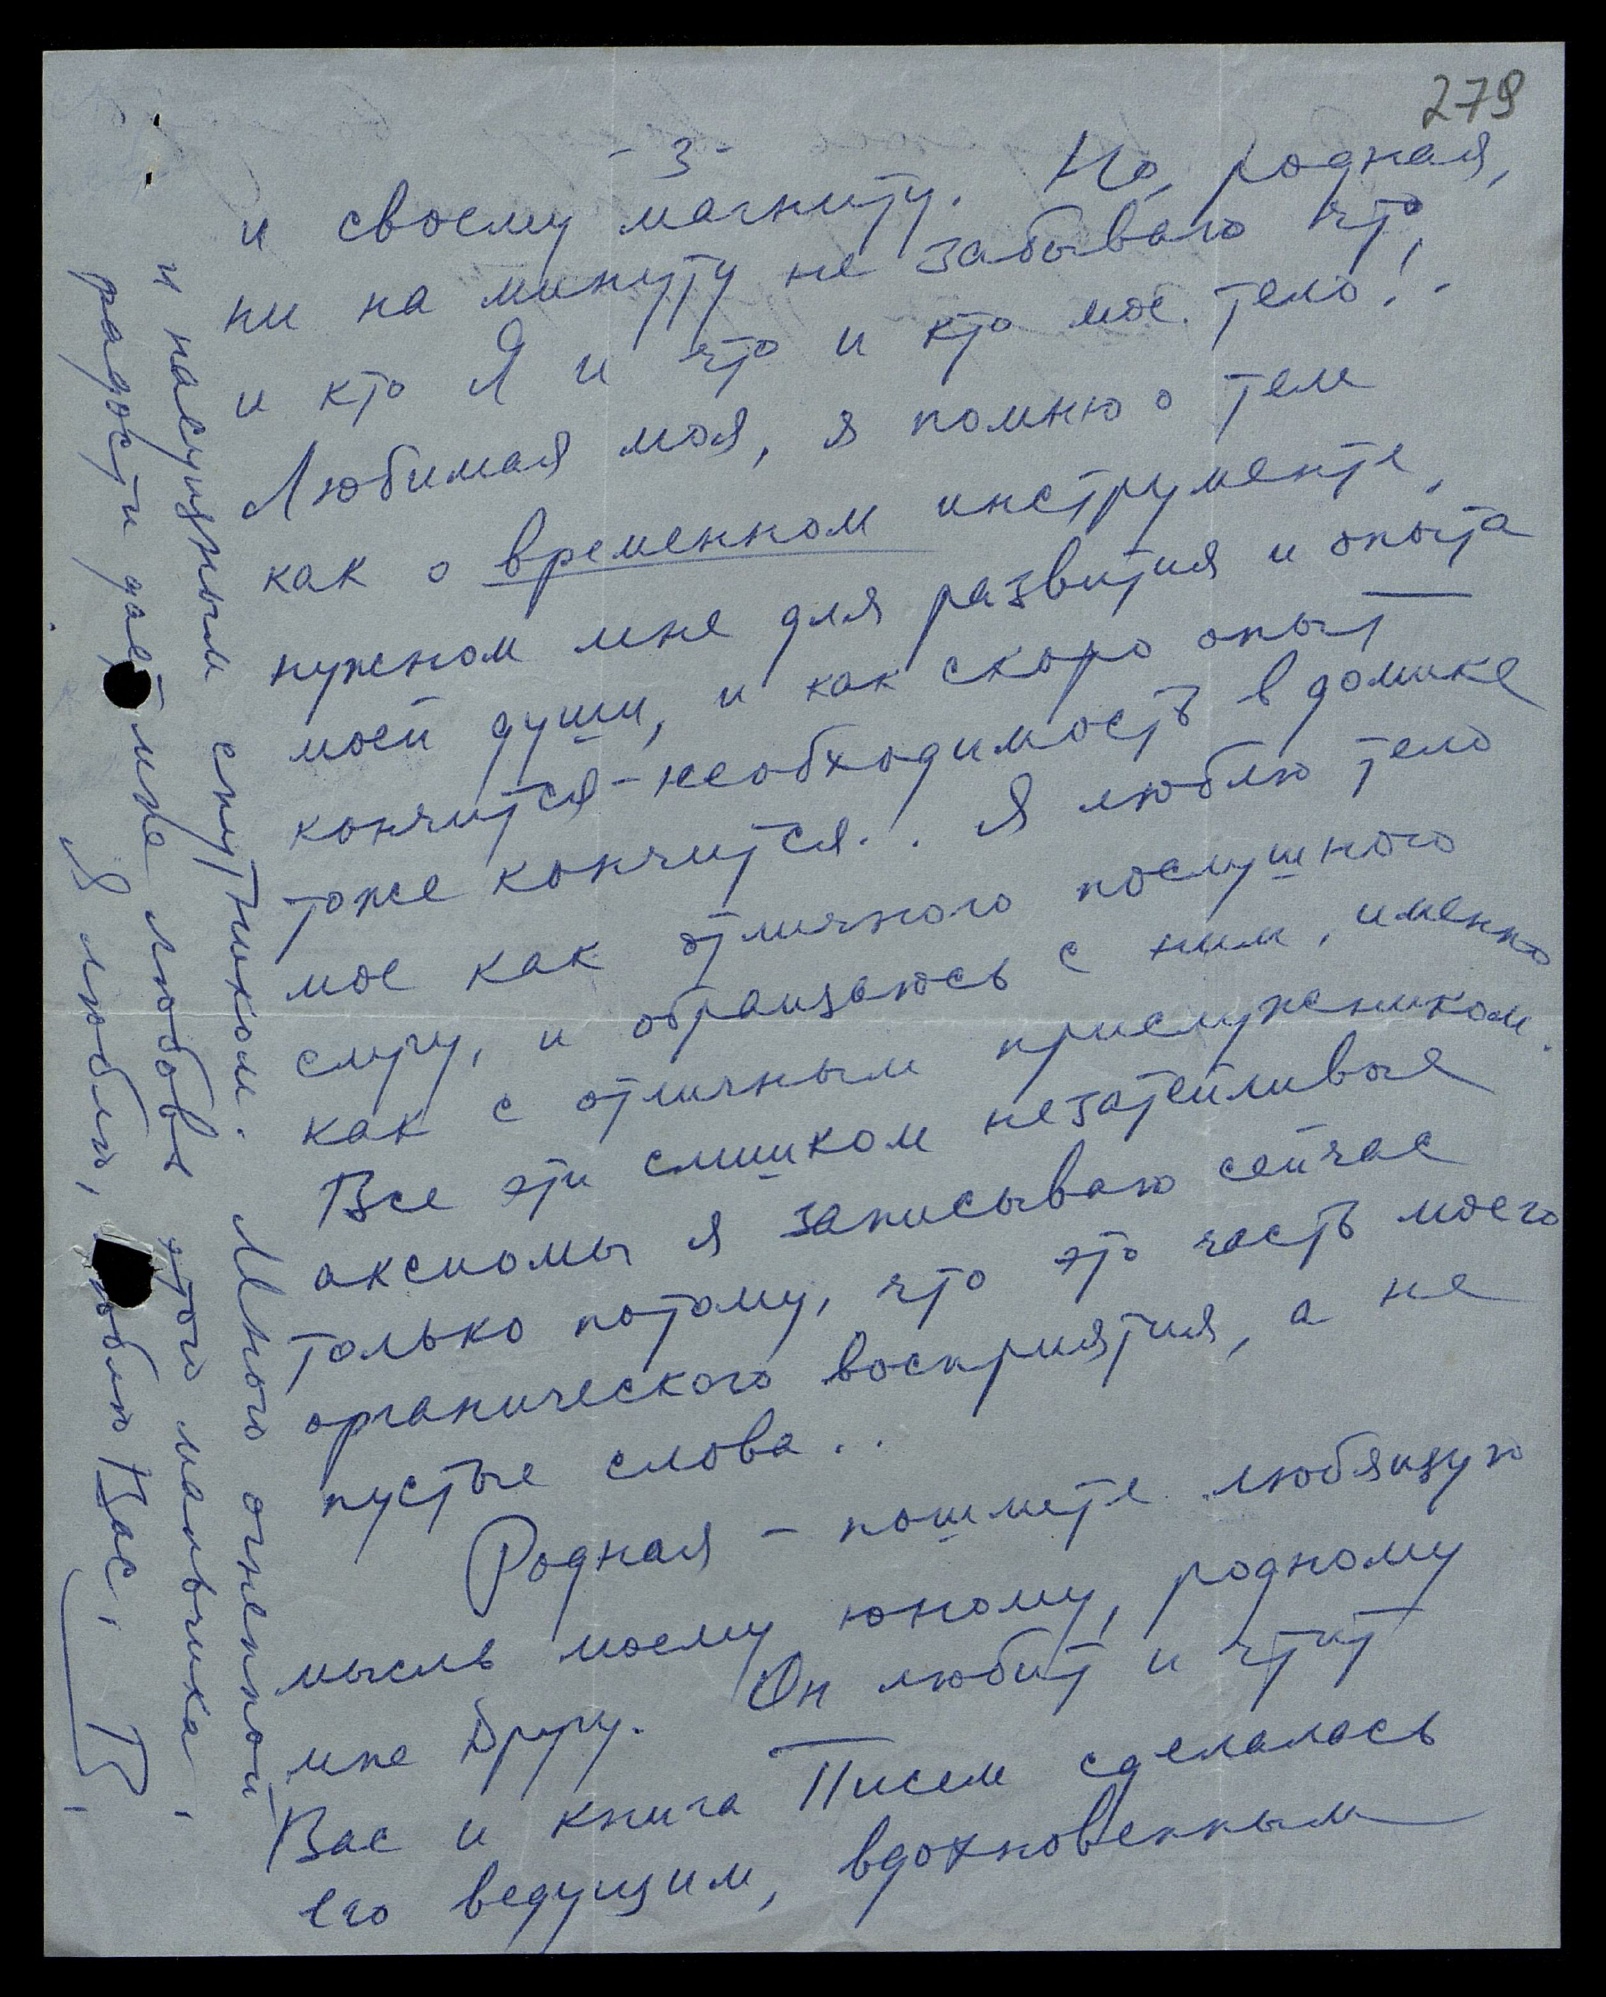 279
- 3 -
и своему магниту. Но, родная,
ни на минуту не забываю что,
и кто Я и что и кто мое тело!.
Любимая моя, я помню о теле
как о временном инструменте,
нужном мне для развития и опыта
моей души, и как скоро опыт
кончится - необходимость в домике
тоже кончится.. Я люблю тело
мое как отличного послушного
слугу, и обращаюсь с ним, именно
как с отличным прислужником.
Все эти слишком незатейливые
аксиомы я записываю сейчас
только потому, что это часть моего
органического восприятия, а не
пустые слова..
Родная - пошлите любящую
мысль моему юному, родному
мне Другу. Он любит и чтит
Вас и книга Писем сделалась
его ведущим, вдохновенным
и насущным спутником. Много огненной
радости дает мне любовь этого мальчика.
Я люблю, люблю Вас. В.